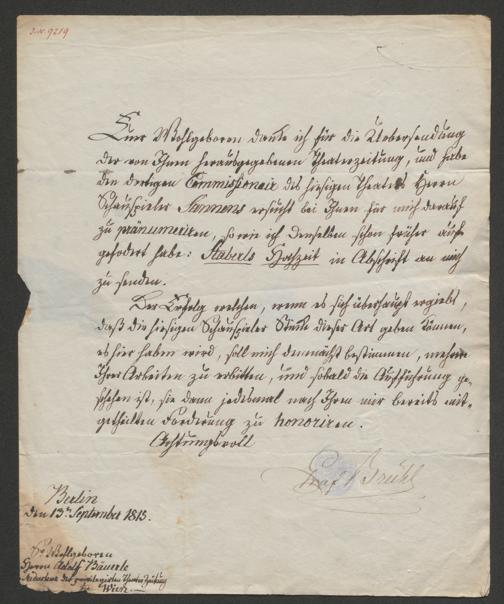 J.N. 9219
Euer Wohlgeboren danke ich für die Uebersendung
der von Ihnen herausgegebenen Theaterzeitung, und habe
den dortigen Commissionair des hiesigen Theaters Herrn
Schauspieler Sannens ersucht bei Ihnen für mich darauf
zu pränumeriren, so wie ich denselben schon früher auf-
gefodert habe: Staberls Hochzeit in Abschrift an mich
zu senden.
Der Erfolg welchen, wenn es sich überhaupt ergiebt,
daß die hiesigen Schauspieler Stücke dieser Art geben können,
es hier haben wird, soll mich demnächst bestimmen, mehrere
Ihrer Arbeiten zu erbitten, und sobald die Aufführung ge-
schehen ist, sie dann jedesmal nach Ihrer mir bereits mit-
getheilten Forderung zu honoriren.
Achtungsvoll
Graf Brühl
Berlin
den 13ten September 1815.
Sr. Wohlgeboren
Herrn Adolf Bäuerle
Redacteur der privilegirten Theaterzeitung
zu Wien